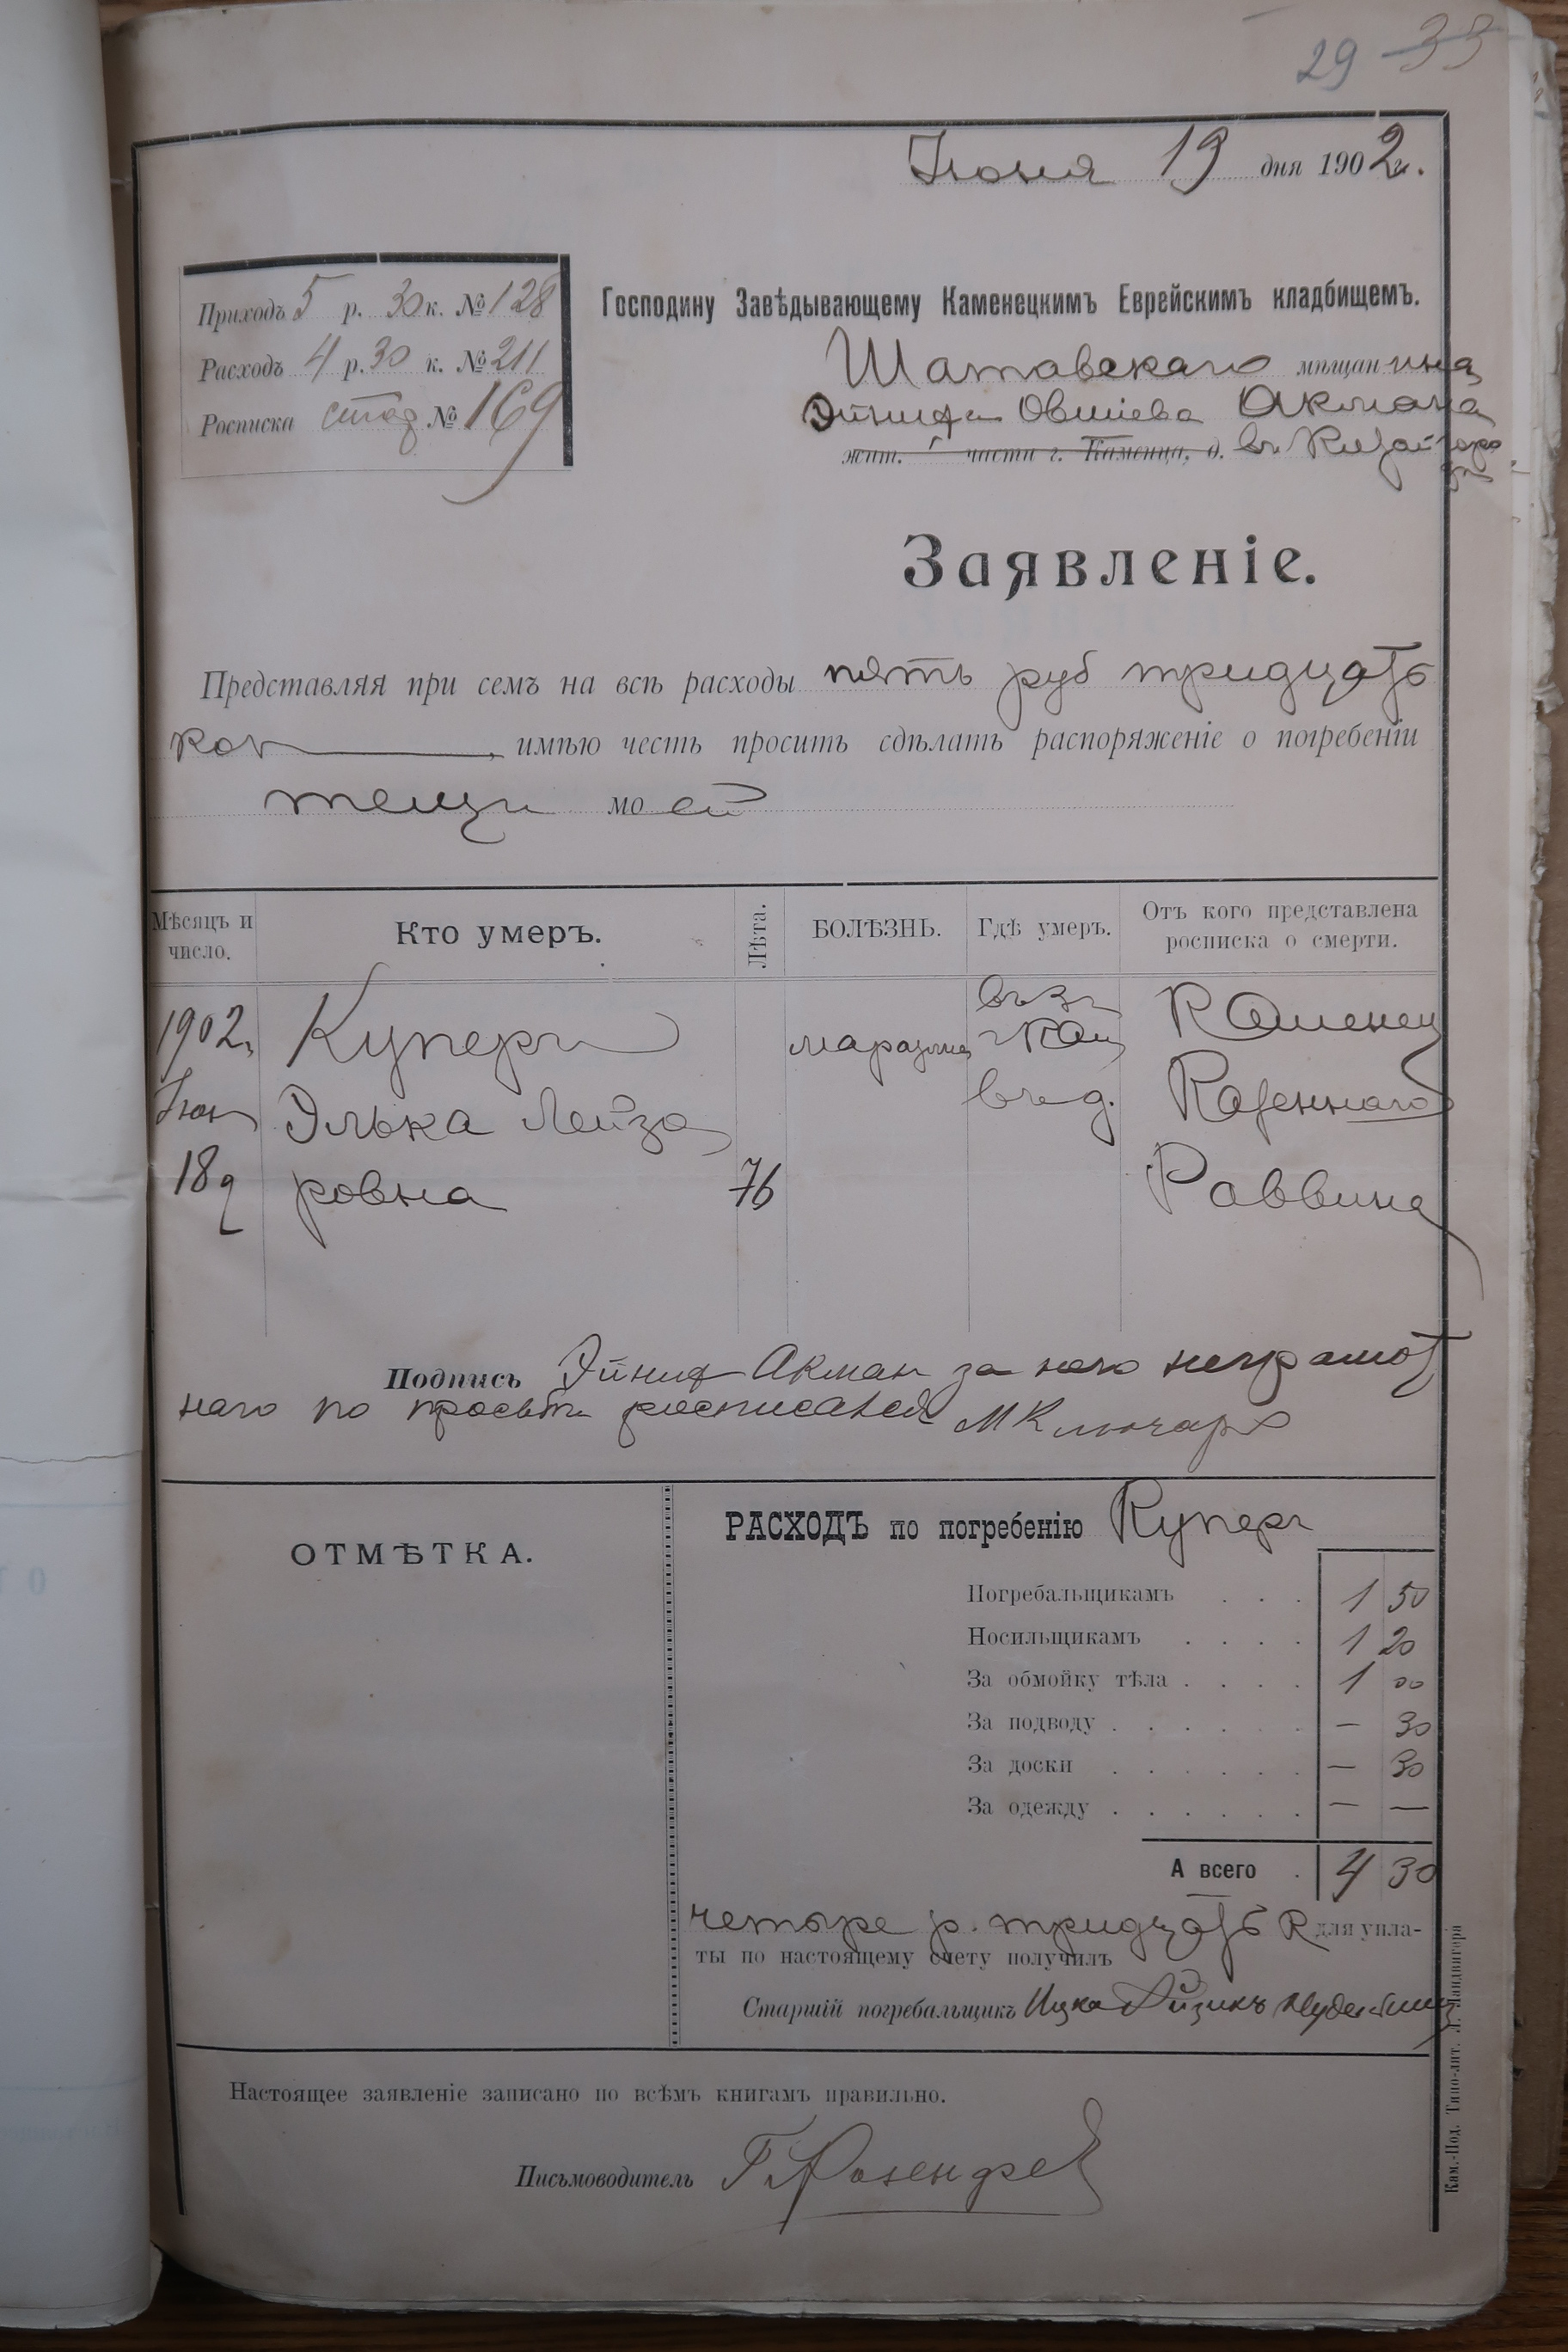 29 33
Іюня 19 дня 1902 г.
Приходъ 5 р. 30 к. № 128
Расходъ 4 р. 30 к. № 211
Росписка № 169
Господину Завѣдывающему Каменецкимъ Еврейскимъ кладбищемъ.
Шатавскаго мѣщанина
Овшіева Акмана
жит. части г. Каменца, д. въ
Заявленіе.
Представляя при семъ на всѣ расходы пять руб тридцать
коп, имѣю честь просить сдѣлать распоряженіе о погребеніи
тещи моей
Мѣсяцъ и число. Кто умеръ. Лѣта. БОЛѢЗНЬ. Гдѣ умеръ. Отъ кого представлена росписка о смерти.
1902 Куперъ маразма Каменец
Элька Лейза Казеннаго
18 ровна 76 Раввина
Подпись Акман за него неграмот
наго по просьбѣ росписался М Ключаръ
ОТМѢТКА.
РАСХОДЪ по погребенію Куперъ
Погребальщикамъ . . . 1 50
Носильщикамъ . . . . 1 20
За обмойку тѣла . . . . 1 00
За подводу . . . . . . — 30
За доски . . . . . . — 30
За одежду . . . . . . — —
А всего . 4 30
четыре р. тридцать к для упла-
ты по настоящему счету получилъ
Старшій погребальщикъ Ицко Айзикъ
Настоящее заявленіе записано по всѣмъ книгамъ правильно.
Письмоводитель Г. Розенфе
Кам.-Под. Типо-лит. Л. Ландвигера